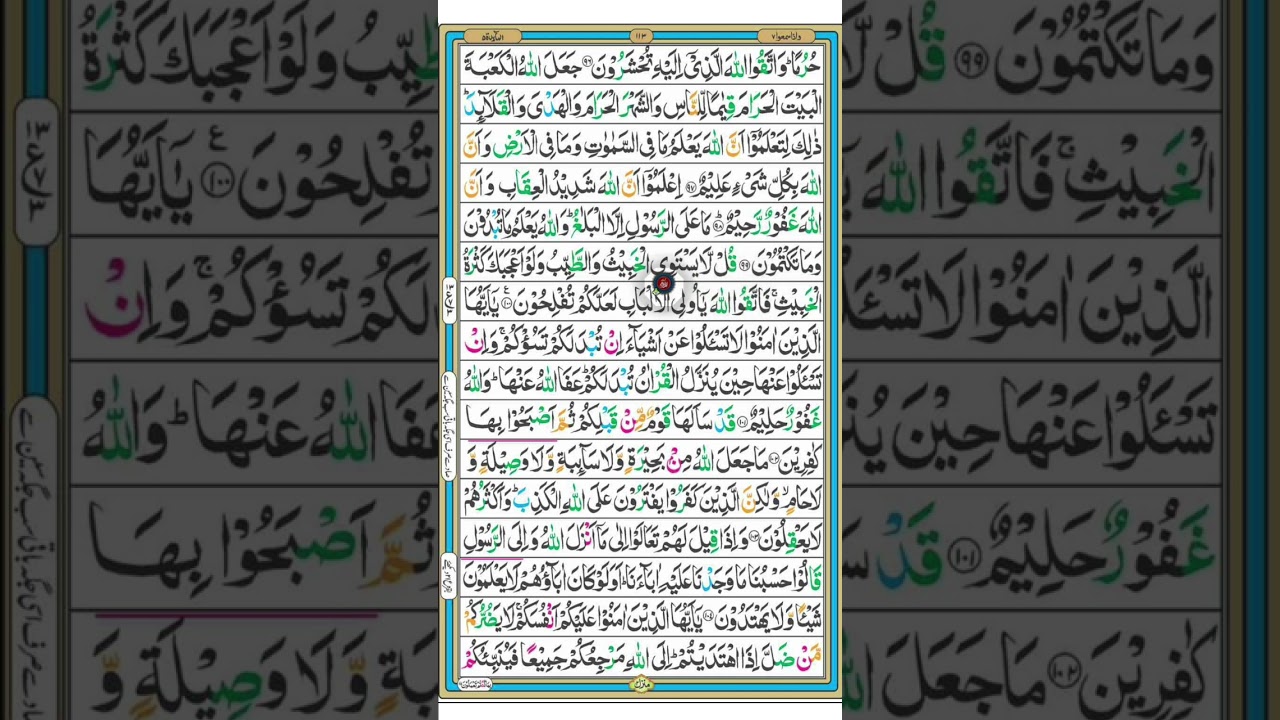 واذاسمعوا۷
۱۱۳
المآىٕدة۵
حُرُمًا ؕ وَاتَّقُوا اللّٰهَ الَّذِیْۤ اِلَیْهِ تُحْشَرُوْنَ ۹۶ جَعَلَ اللّٰهُ الْكَعْبَةَ
الْبَیْتَ الْحَرَامَ قِیٰمًا لِّلنَّاسِ وَالشَّهْرَ الْحَرَامَ وَالْهَدْیَ وَالْقَلَآىِٕدَ ؕ
ذٰلِكَ لِتَعْلَمُوْۤا اَنَّ اللّٰهَ یَعْلَمُ مَا فِی السَّمٰوٰتِ وَمَا فِی الْاَرْضِ وَ اَنَّ
اللّٰهَ بِكُلِّ شَیْءٍ عَلِیْمٌ ۹۷ اِعْلَمُوْۤا اَنَّ اللّٰهَ شَدِیْدُ الْعِقَابِ وَ اَنَّ
اللّٰهَ غَفُوْرٌ رَّحِیْمٌ ؕ ۹۸ مَا عَلَی الرَّسُوْلِ اِلَّا الْبَلٰغُ ؕ وَاللّٰهُ یَعْلَمُ مَا تُبْدُوْنَ
وَمَا تَكْتُمُوْنَ ۹۹ قُلْ لَّا یَسْتَوِی الْخَبِیْثُ وَالطَّیِّبُ وَلَوْ اَعْجَبَكَ كَثْرَةُ
الْخَبِیْثِ ۚ فَاتَّقُوا اللّٰهَ یٰۤاُولِی الْاَلْبَابِ لَعَلَّكُمْ تُفْلِحُوْنَ ۱۰۰ ع یٰۤاَیُّهَا
الَّذِیْنَ اٰمَنُوْا لَا تَسْـَٔلُوْا عَنْ اَشْیَآءَ اِنْ تُبْدَ لَكُمْ تَسُؤْكُمْ ۚ وَاِنْ
تَسْـَٔلُوْا عَنْهَا حِیْنَ یُنَزَّلُ الْقُرْاٰنُ تُبْدَ لَكُمْ ؕ عَفَا اللّٰهُ عَنْهَا ؕ وَاللّٰهُ
غَفُوْرٌ حَلِیْمٌ ۱۰۱ قَدْ سَاَلَهَا قَوْمٌ مِّنْ قَبْلِكُمْ ثُمَّ اَصْبَحُوْا بِهَا
كٰفِرِیْنَ ۱۰۲ مَا جَعَلَ اللّٰهُ مِنْۢ بَحِیْرَةٍ وَّلَا سَآىِٕبَةٍ وَّلَا وَصِیْلَةٍ وَّ
لَا حَامٍ ۙ وَّلٰكِنَّ الَّذِیْنَ كَفَرُوْا یَفْتَرُوْنَ عَلَی اللّٰهِ الْكَذِبَ ؕ وَاَكْثَرُهُمْ
لَا یَعْقِلُوْنَ ۱۰۳ وَاِذَا قِیْلَ لَهُمْ تَعَالَوْا اِلٰی مَاۤ اَنْزَلَ اللّٰهُ وَاِلَی الرَّسُوْلِ
قَالُوْا حَسْبُنَا مَا وَجَدْنَا عَلَیْهِ اٰبَآءَنَا ؕ اَوَلَوْ كَانَ اٰبَآؤُهُمْ لَا یَعْلَمُوْنَ
شَیْـًٔا وَّلَا یَهْتَدُوْنَ ۱۰۴ یٰۤاَیُّهَا الَّذِیْنَ اٰمَنُوْا عَلَیْكُمْ اَنْفُسَكُمْ ۚ لَا یَضُرُّكُمْ
مَّنْ ضَلَّ اِذَا اهْتَدَیْتُمْ ؕ اِلَی اللّٰهِ مَرْجِعُكُمْ جَمِیْعًا فَیُنَبِّئُكُمْ
منزل۲